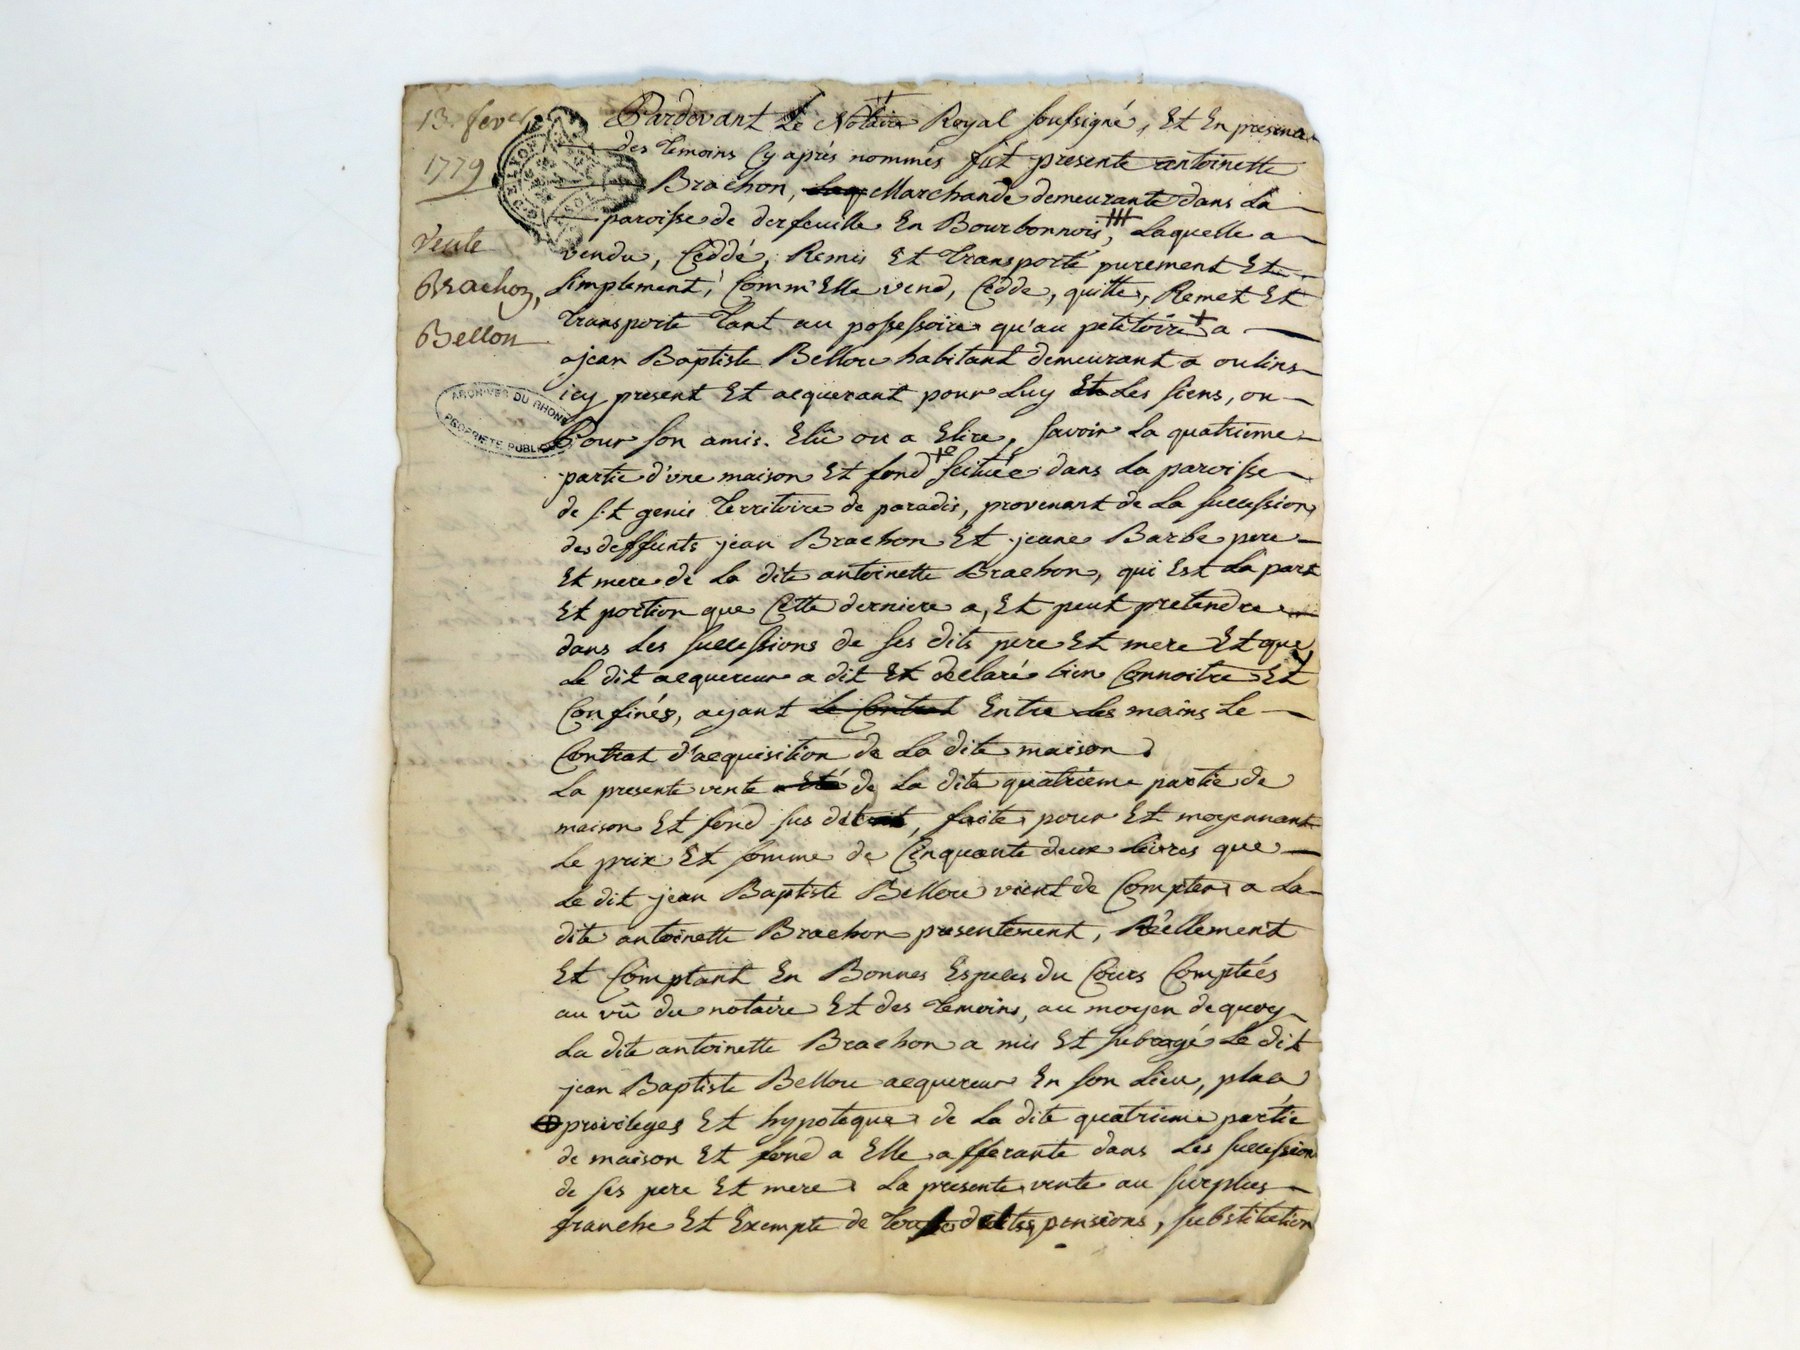 13. fevr
1779
Vente
Brachon,
Bellou
ARCHIVES DU RHONE
PROPRIETE PUBLIQUE
Pardevant Le Notaire Royal soussigné, Et En presence
des temoins Cy aprés nommés fut presente antoinette
Brachon, Marchande demeurante dans La
paroisse de derfeuille En Bourbonnois, Laquelle a
vendu, Ceddé, Remis Et transporté purement Et
simplement, Comm'Elle vend, Cedde, quitte, Remet Et
transporte tant au possessoire qu'au petitoire + a
jean Baptiste Bellou habitant demeurant a oulins
icy present Et acquerant pour Luy Et Les siens, ou
Pour son amis Elû ou a Elire, savoir La quatrieme
partie d'une maison Et fond scituée dans La paroisse
de s.t genis territoire de paradis, provenant de La succession
des deffunts jean Brachon Et jeane Barbe pere
Et mere de La dite antoinette Brachon, qui Est La part
Et portion que Cette derniere a, Et peut pretendre
dans Les successions de ses dits pere Et mere Et que
Le dit acquereur a dit Et declaré bien Connoitre Et
Confinés, ayant le Contrat Entre Les mains Le
Contrat d'acquisition de La dite maison.
La presente vente de La dite quatrieme partie de
maison Et fond sus dit, faite pour Et moyennant
Le prix Et somme de Cinquante deux Livres que
Le dit jean Baptiste Bellou vient de Compter a La
dite antoinette Brachon presentement, Réellement
Et Comptant En Bonnes Especes du Cours Comptées
au vû du notaire Et des temoins, au moyen de quoy
La dite antoinette Brachon a mis Et subrogé Le dit
jean Baptiste Bellou acquereur En son Lieu, place
privileges Et hypoteque de La dite quatrieme partie
de maison Et fond a Elle afferante dans Les succession
de ses pere Et mere La presente vente au surplus
franche Et Exempte de dettes pensions, substitution